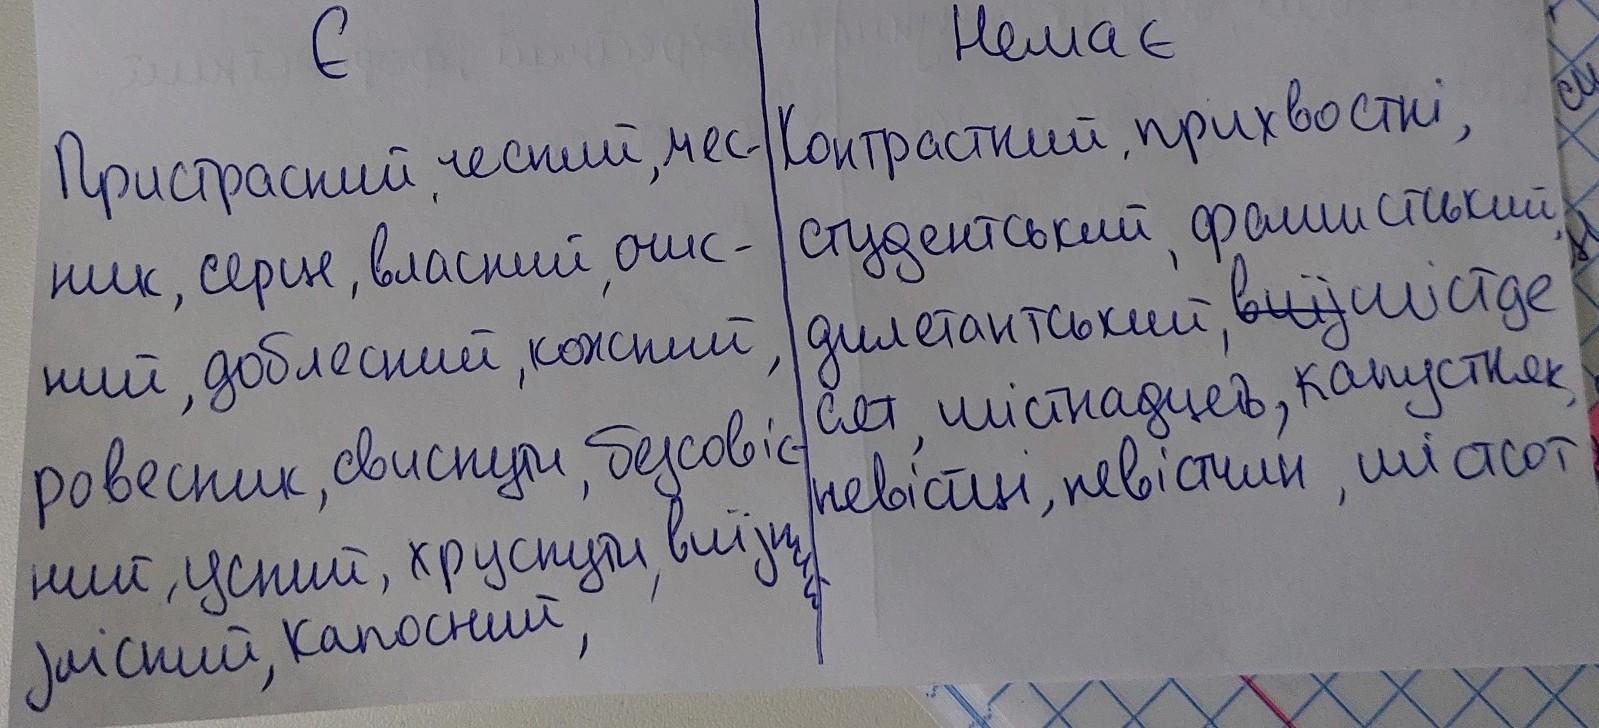 Є
Пристрасний, чесний, мес-
ник, серце, власний, очис-
ний, доблесний, кожсний,
ровесник, свиснути, безсовіс-
ний, усний, хруснути, виїзн
умісний, капосний,
Немає
Контрастний, прихвостні,
студентський, фашистський,
дилетантський, шістде
сят, шістнадцять, капустняк,
невістці, невістчин, шістсот